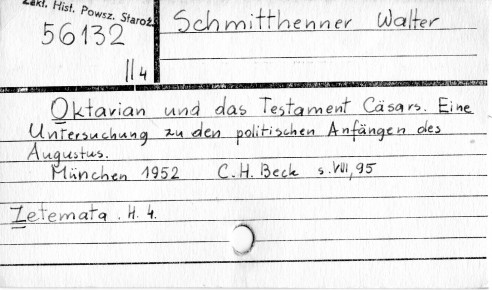 Zakł. Hist. Powsz. Staroż.
56132
II 4
Schmitthenner Walter
Oktavian und das Testament Cäsars. Eine
Untersuchung zu den politischen Anfängen des
Augustus.
München 1952 C.H. Beck s. VIII, 95
Zetemata. H. 4.